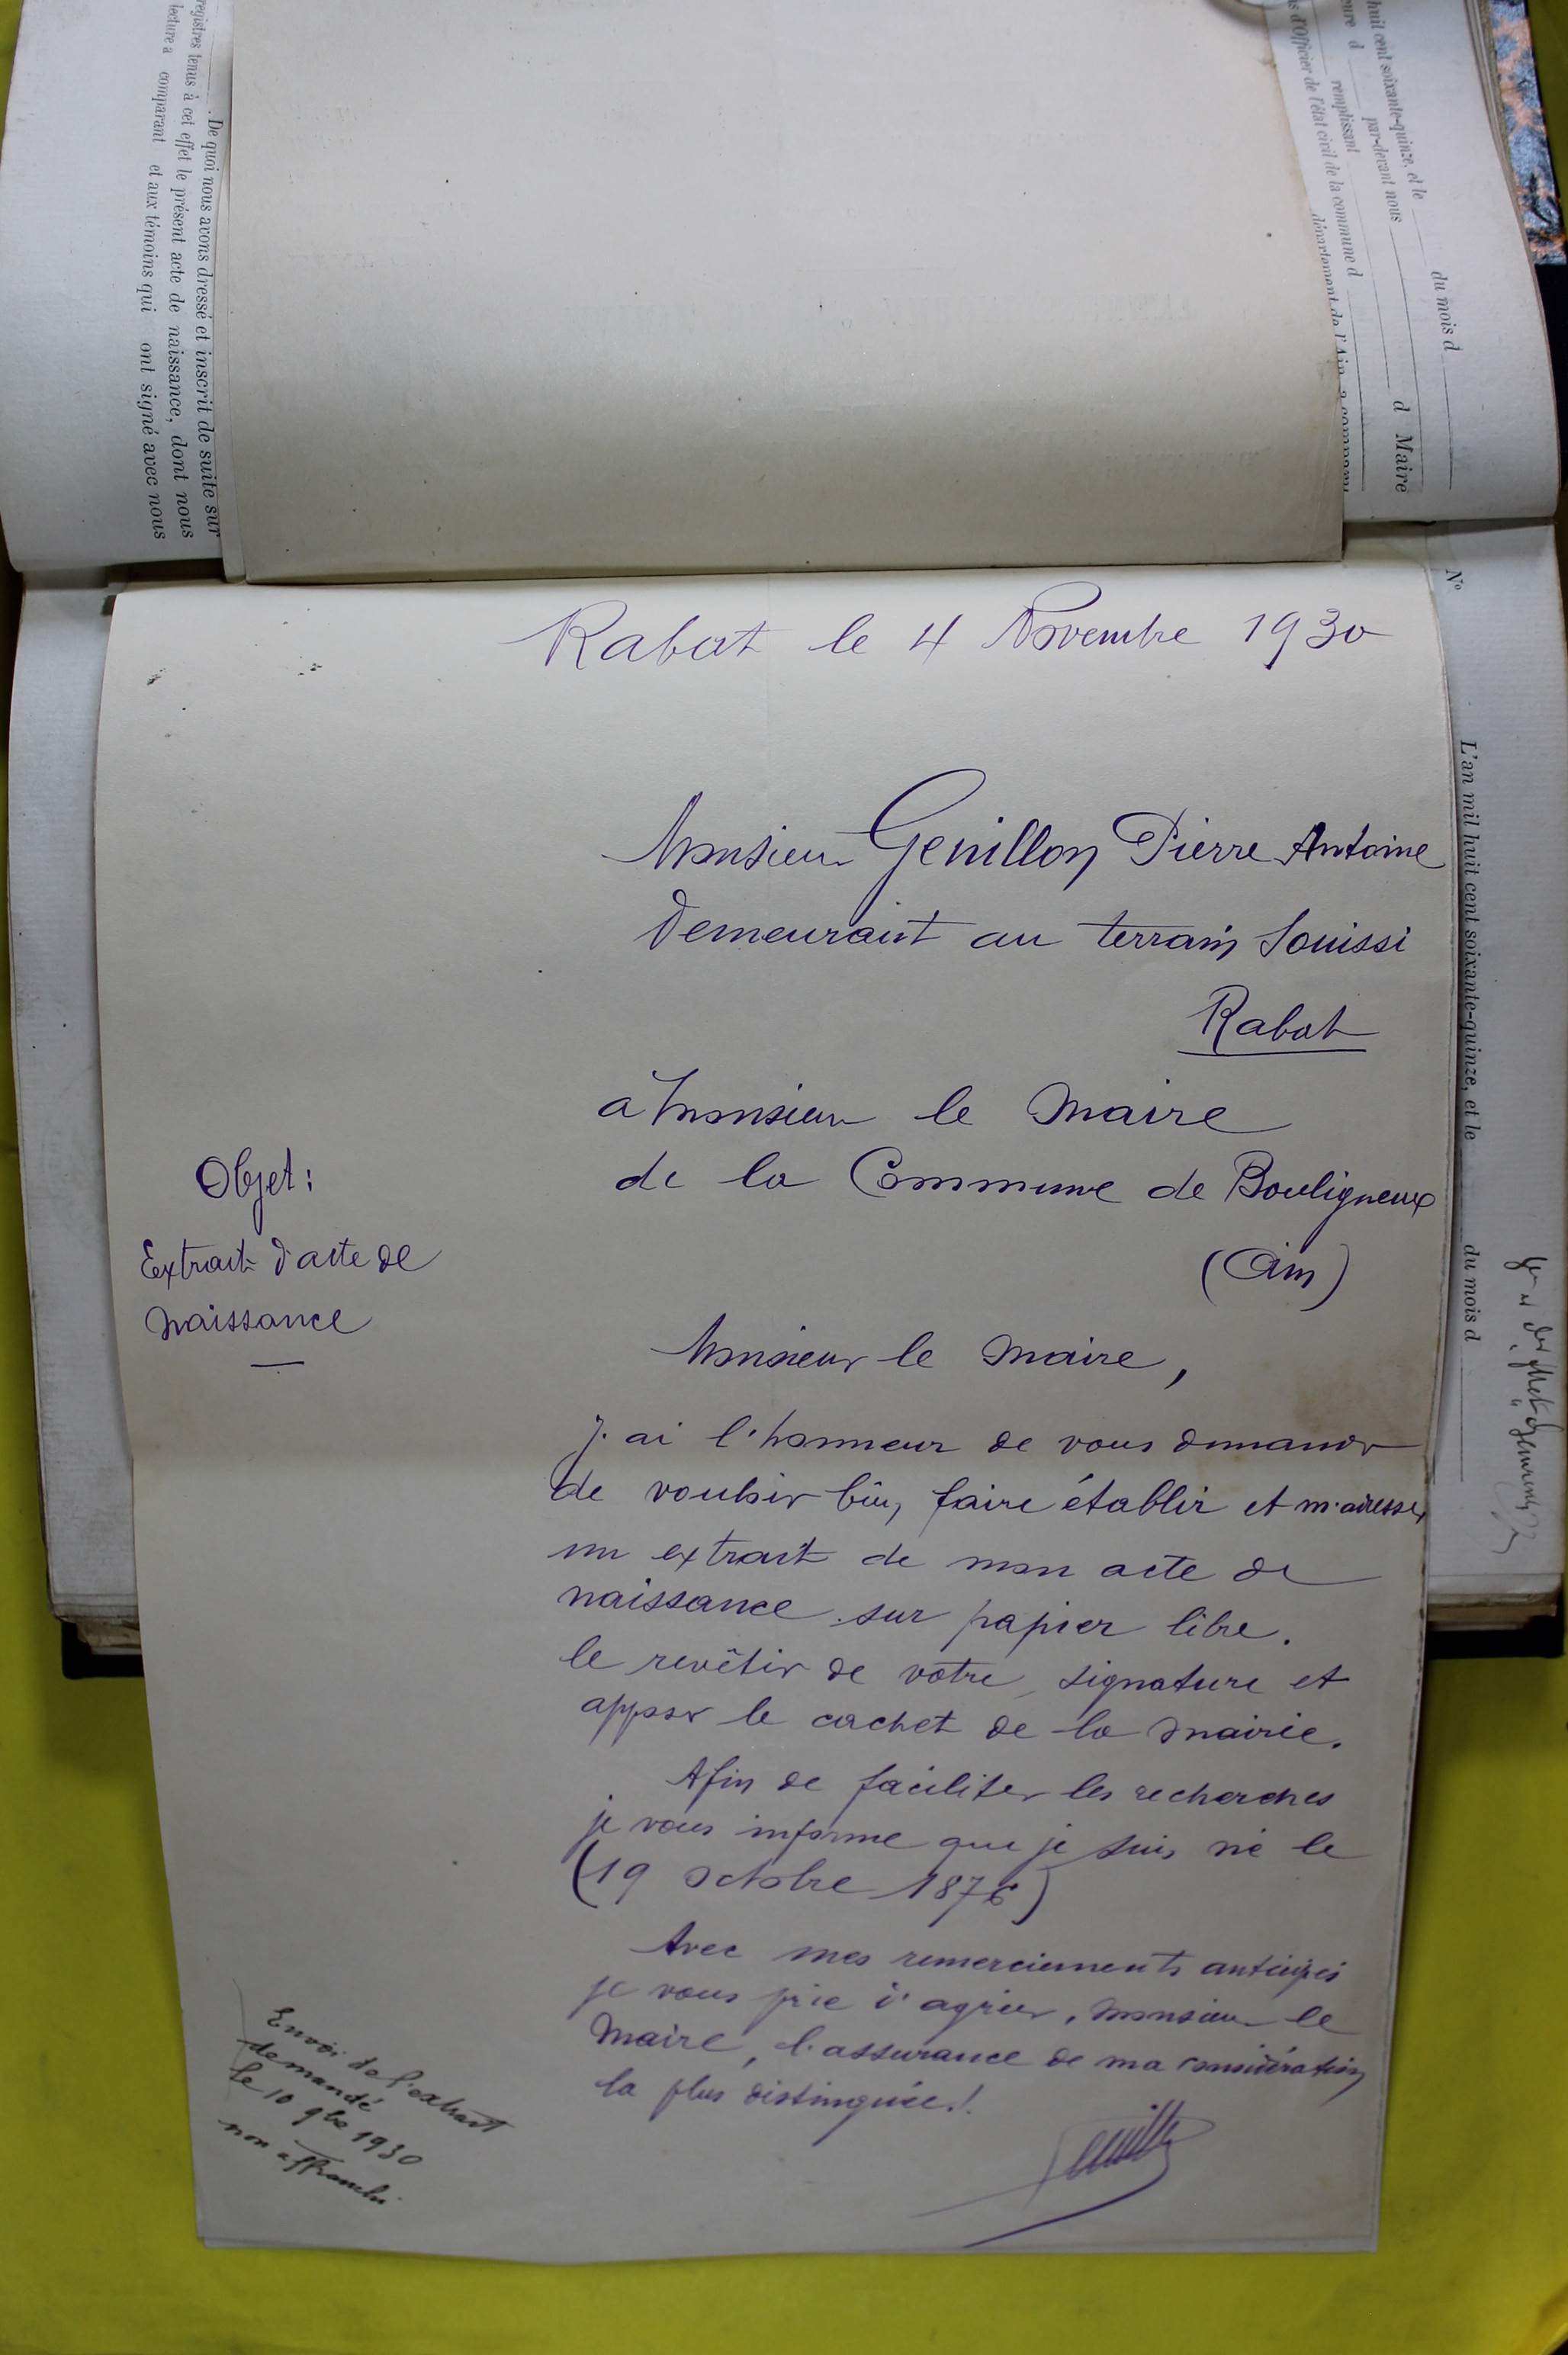 De quoi nous avons dressé et inscrit de suite sur
registres tenus à cet effet le présent acte de naissance, dont nous
lecture a comparant et aux témoins qui ont signé avec nous
huit cent soixante-quinze, et le du mois d
par-devant nous d Maire
remplissant
s d'Officier de l'état civil de la commune d
département de l'Ain, a comparu
Rabat le 4 Novembre 1930
Monsieur Genillon Pierre Antoine
Demeurant au terrain Souissi
Rabat
à Monsieur le Maire
de la Commune de Bouligneux
(Ain)
Objet :
Extrait d'acte de
naissance
Monsieur le Maire,
J'ai l'honneur de vous demander
de vouloir bien, faire établir et m'adresser
un extrait de mon acte de
naissance sur papier libre.
le revêtir de votre signature et
apposer le cachet de la mairie.
Afin de faciliter les recherches
je vous informe que je suis né le
(19 octobre 1876)
Avec mes remerciements anticipés
je vous prie d'agréer, Monsieur le
Maire, l'assurance de ma considération
la plus distinguée !.
Envoi de l'extrait
demandé
le 10 9bre 1930
non affranchi.
N°
L'an mil huit cent soixante-quinze, et le du mois d